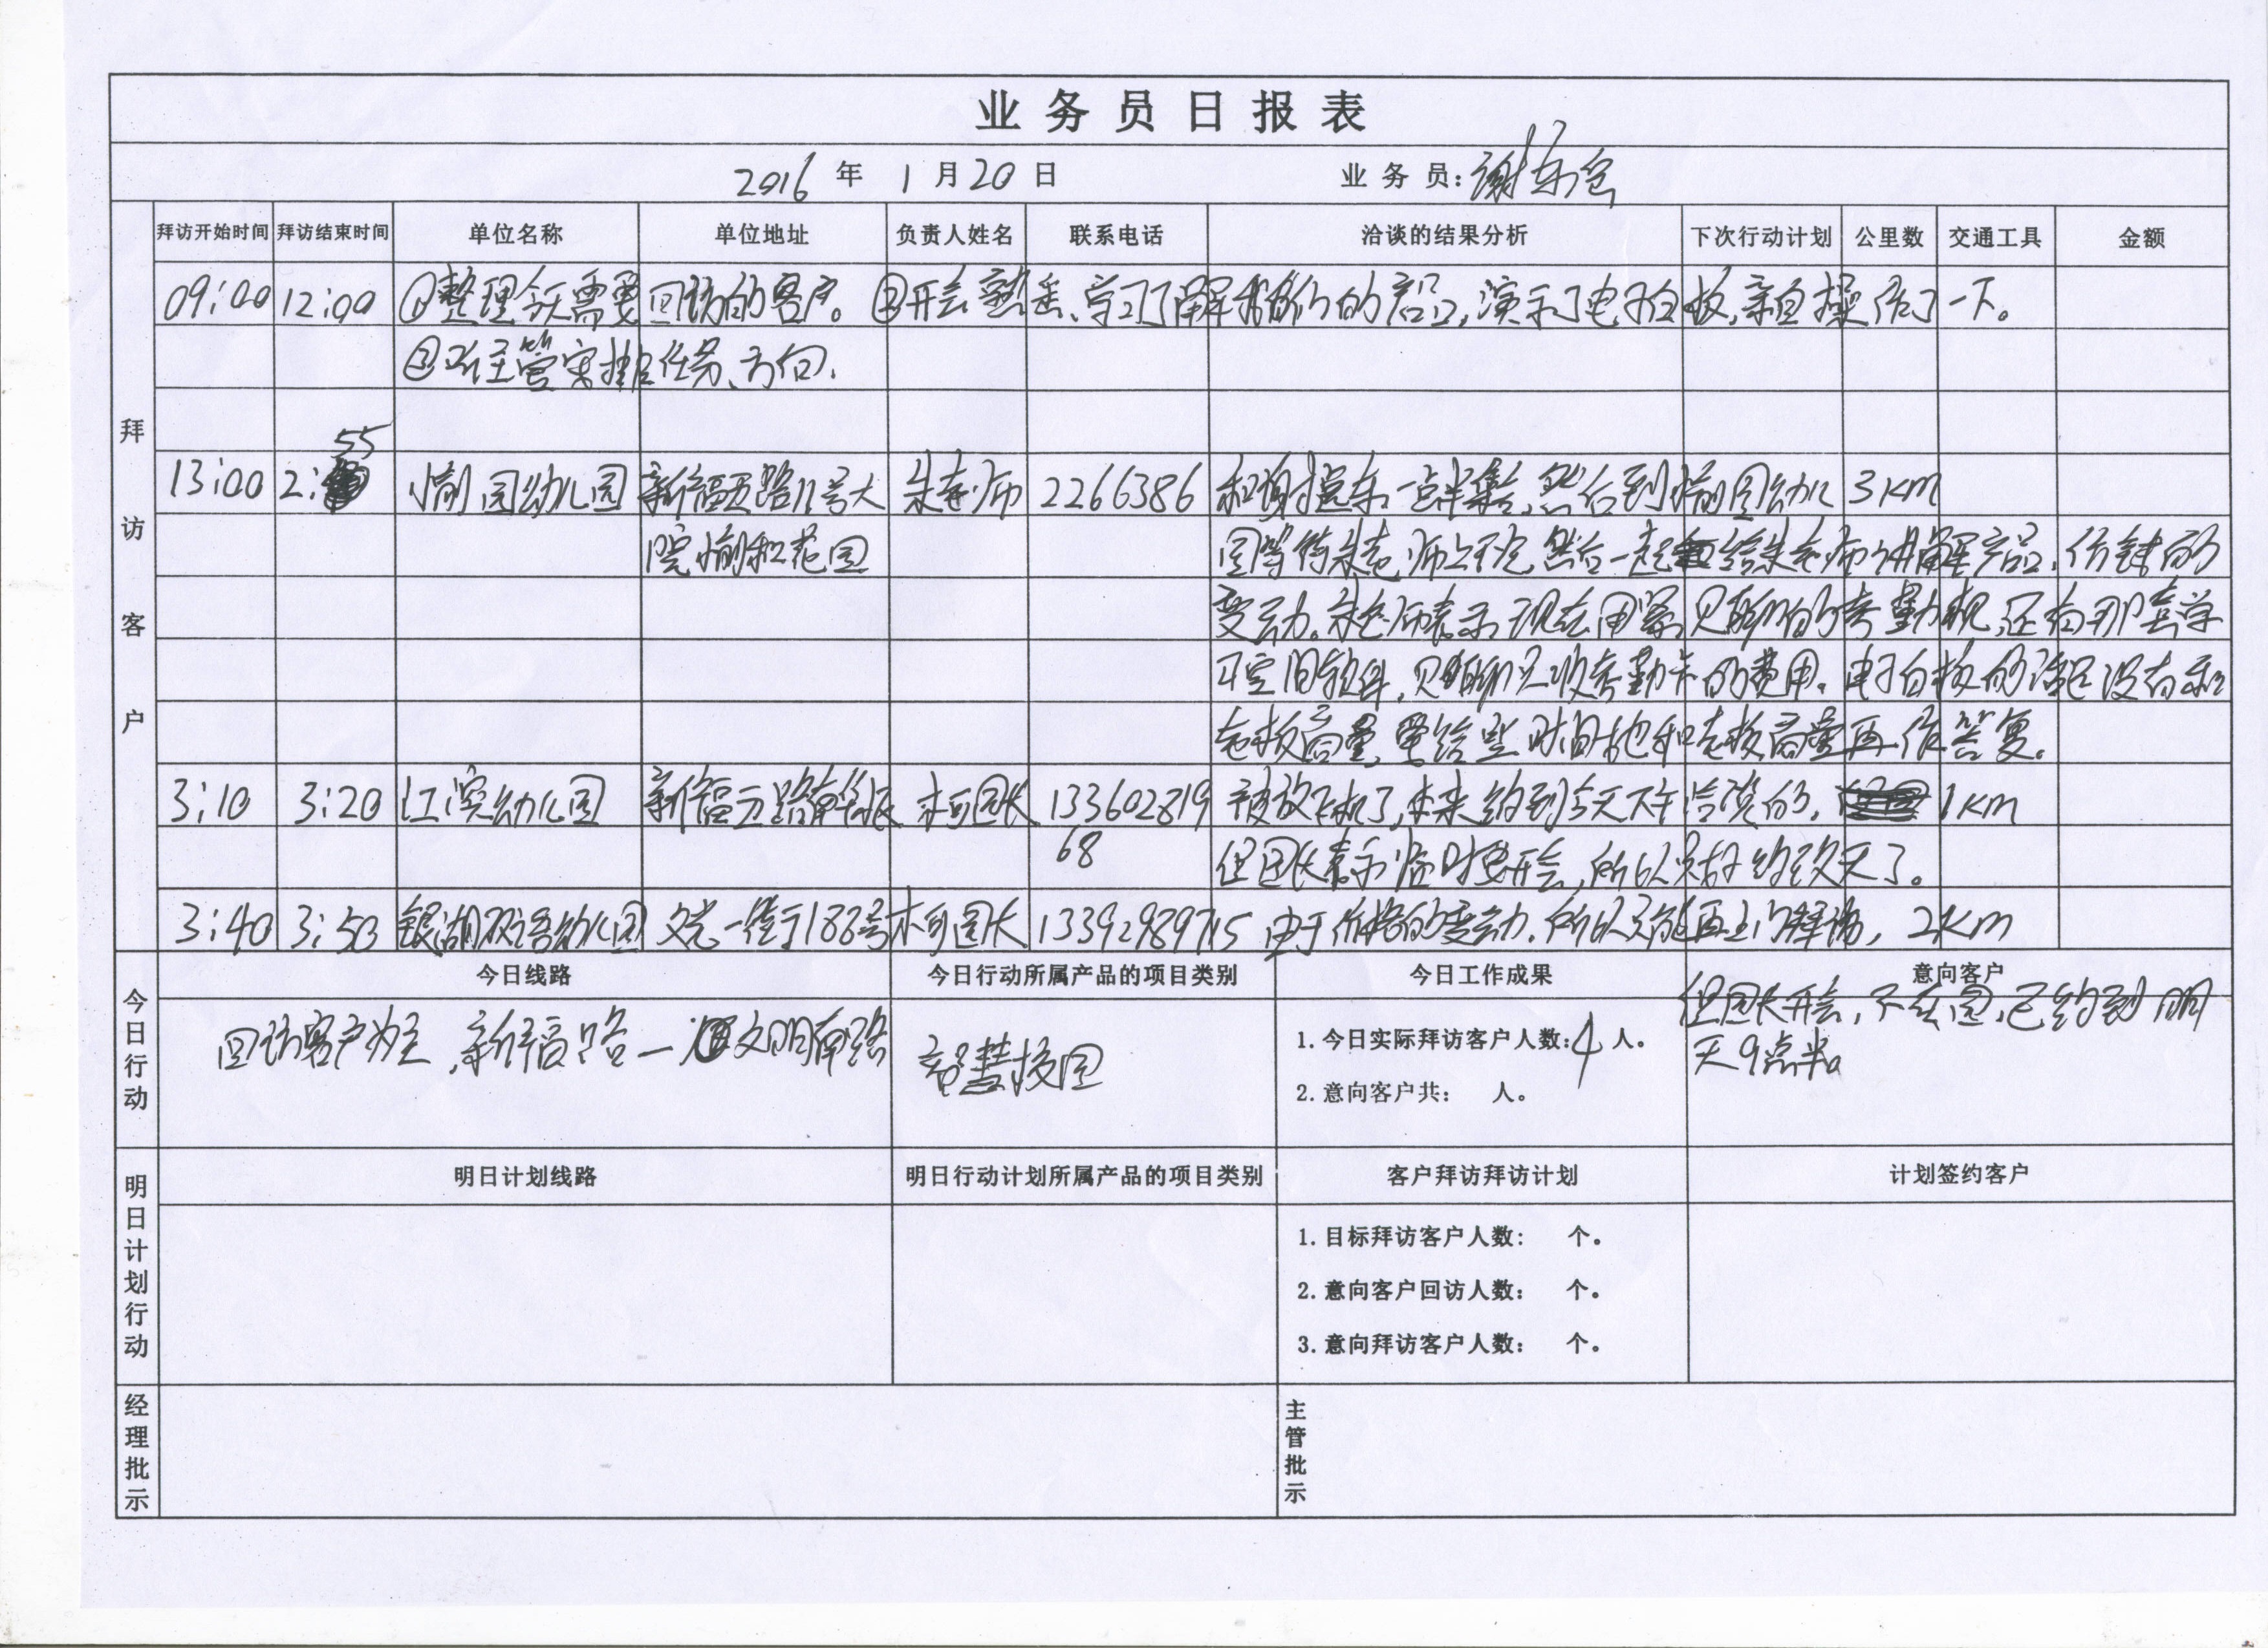 业务员日报表
2016 年 1 月 20 日 业务员: 谢
拜访客户
拜访开始时间 拜访结束时间 单位名称 单位地址 负责人姓名 联系电话 洽谈的结果分析 下次行动计划 公里数 交通工具 金额
09:00 12:00 ①整理今天需要回访的客户。②开会熟悉、学习了解我们的产品,演示了电子白板,亲自操作了一下。
③听主管安排任务、方向.
13:00 2:55 愉园幼儿园 新福五路11号大 朱老师 2266386 和谢 一点半集合,然后到愉园幼儿 3km
院愉和花园 园等待朱老师上完,然后一起给朱老师讲解产品,价钱的
变动。朱老师表示现在用 贝聊的考勤机,还有那套学
习空间软件,贝聊只收考勤卡的费用.电子白板的话还没有和
老板商量,要给些时间她和老板商量再作答复。
3:10 3:20 江滨幼儿园 新福五路 园长 133602819 被放飞机了,本来约到今天下午洽谈的, 1km
68 但园长表示临时要开会,所以只好约改天了。
3:40 3:50 银湖双语幼儿园 文光一街188号 园长 13392989715 由于价格的变动.所以只能再上门解释, 2km
今日行动
今日线路 今日行动所属产品的项目类别 今日工作成果 意向客户
回访客户为主,新福路—文明南路 智慧校园
1.今日实际拜访客户人数:4 人。
2.意向客户共: 人。
但园长开会,不在园,已约到明
天9点半。
明日计划行动
明日计划线路 明日行动计划所属产品的项目类别 客户拜访拜访计划 计划签约客户
1.目标拜访客户人数: 个。
2.意向客户回访人数: 个。
3.意向拜访客户人数: 个。
经理批示 主管批示